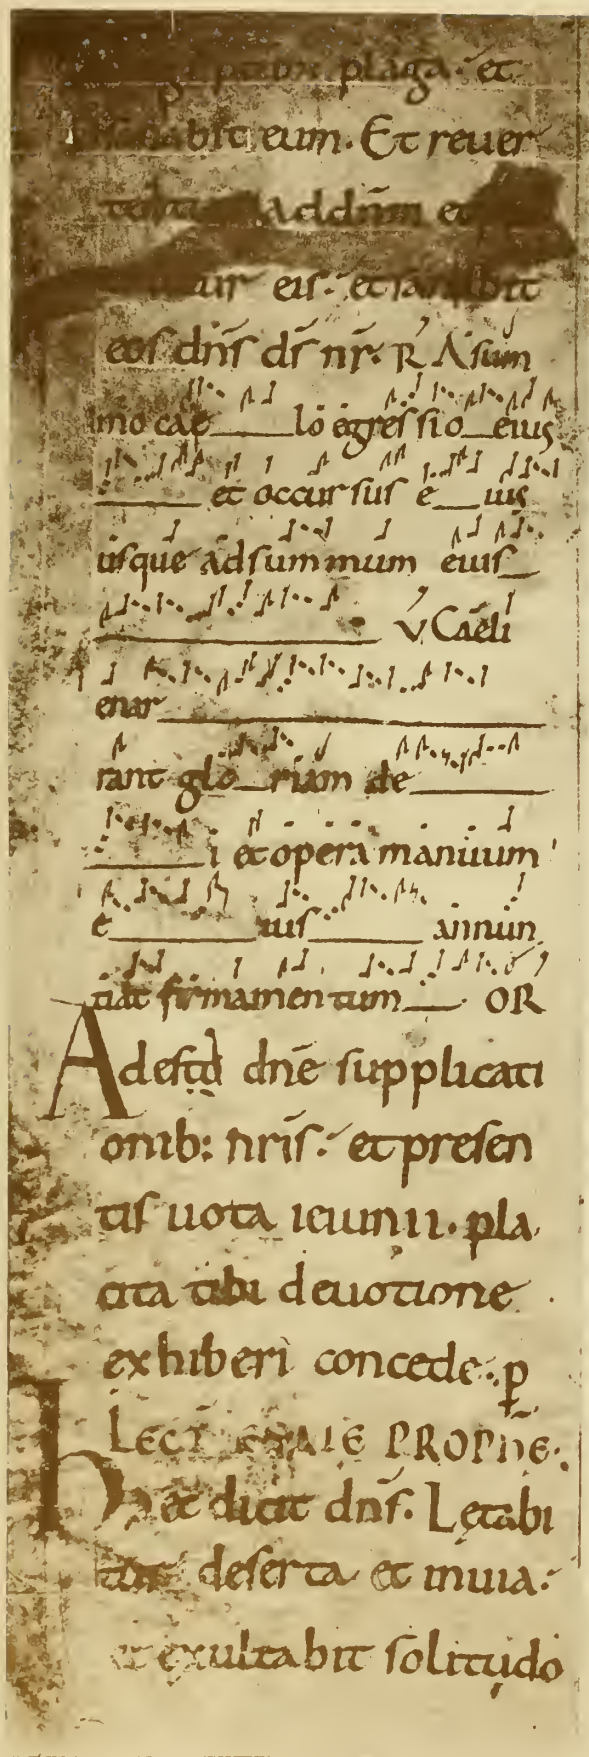 plaga. et
sanabit eum. Et reuer
tentur ad dn̄m et
eis. et sanabit
eos dn̄s ds̄ nr̄. R̸ A sum
mo cae____lo egressio_eius
____ et occursus e__ius
usque ad summum eius_
____________ V̸ Caeli
enar____________
rant glo_riam de____
____i et opera manuum
e____ius____ annun
tiat firmamentum__ OR
Adesto dn̄e supplicati
onib: nr̄is. et presen
tis uota ieiunii. pla
cita tibi deuotione
exhiberi concede. p̄
LECT ESAIE PROPHE.
Hec dicit dn̄s. Lętabi
tur deserta et inuia.
et exultabit solitudo